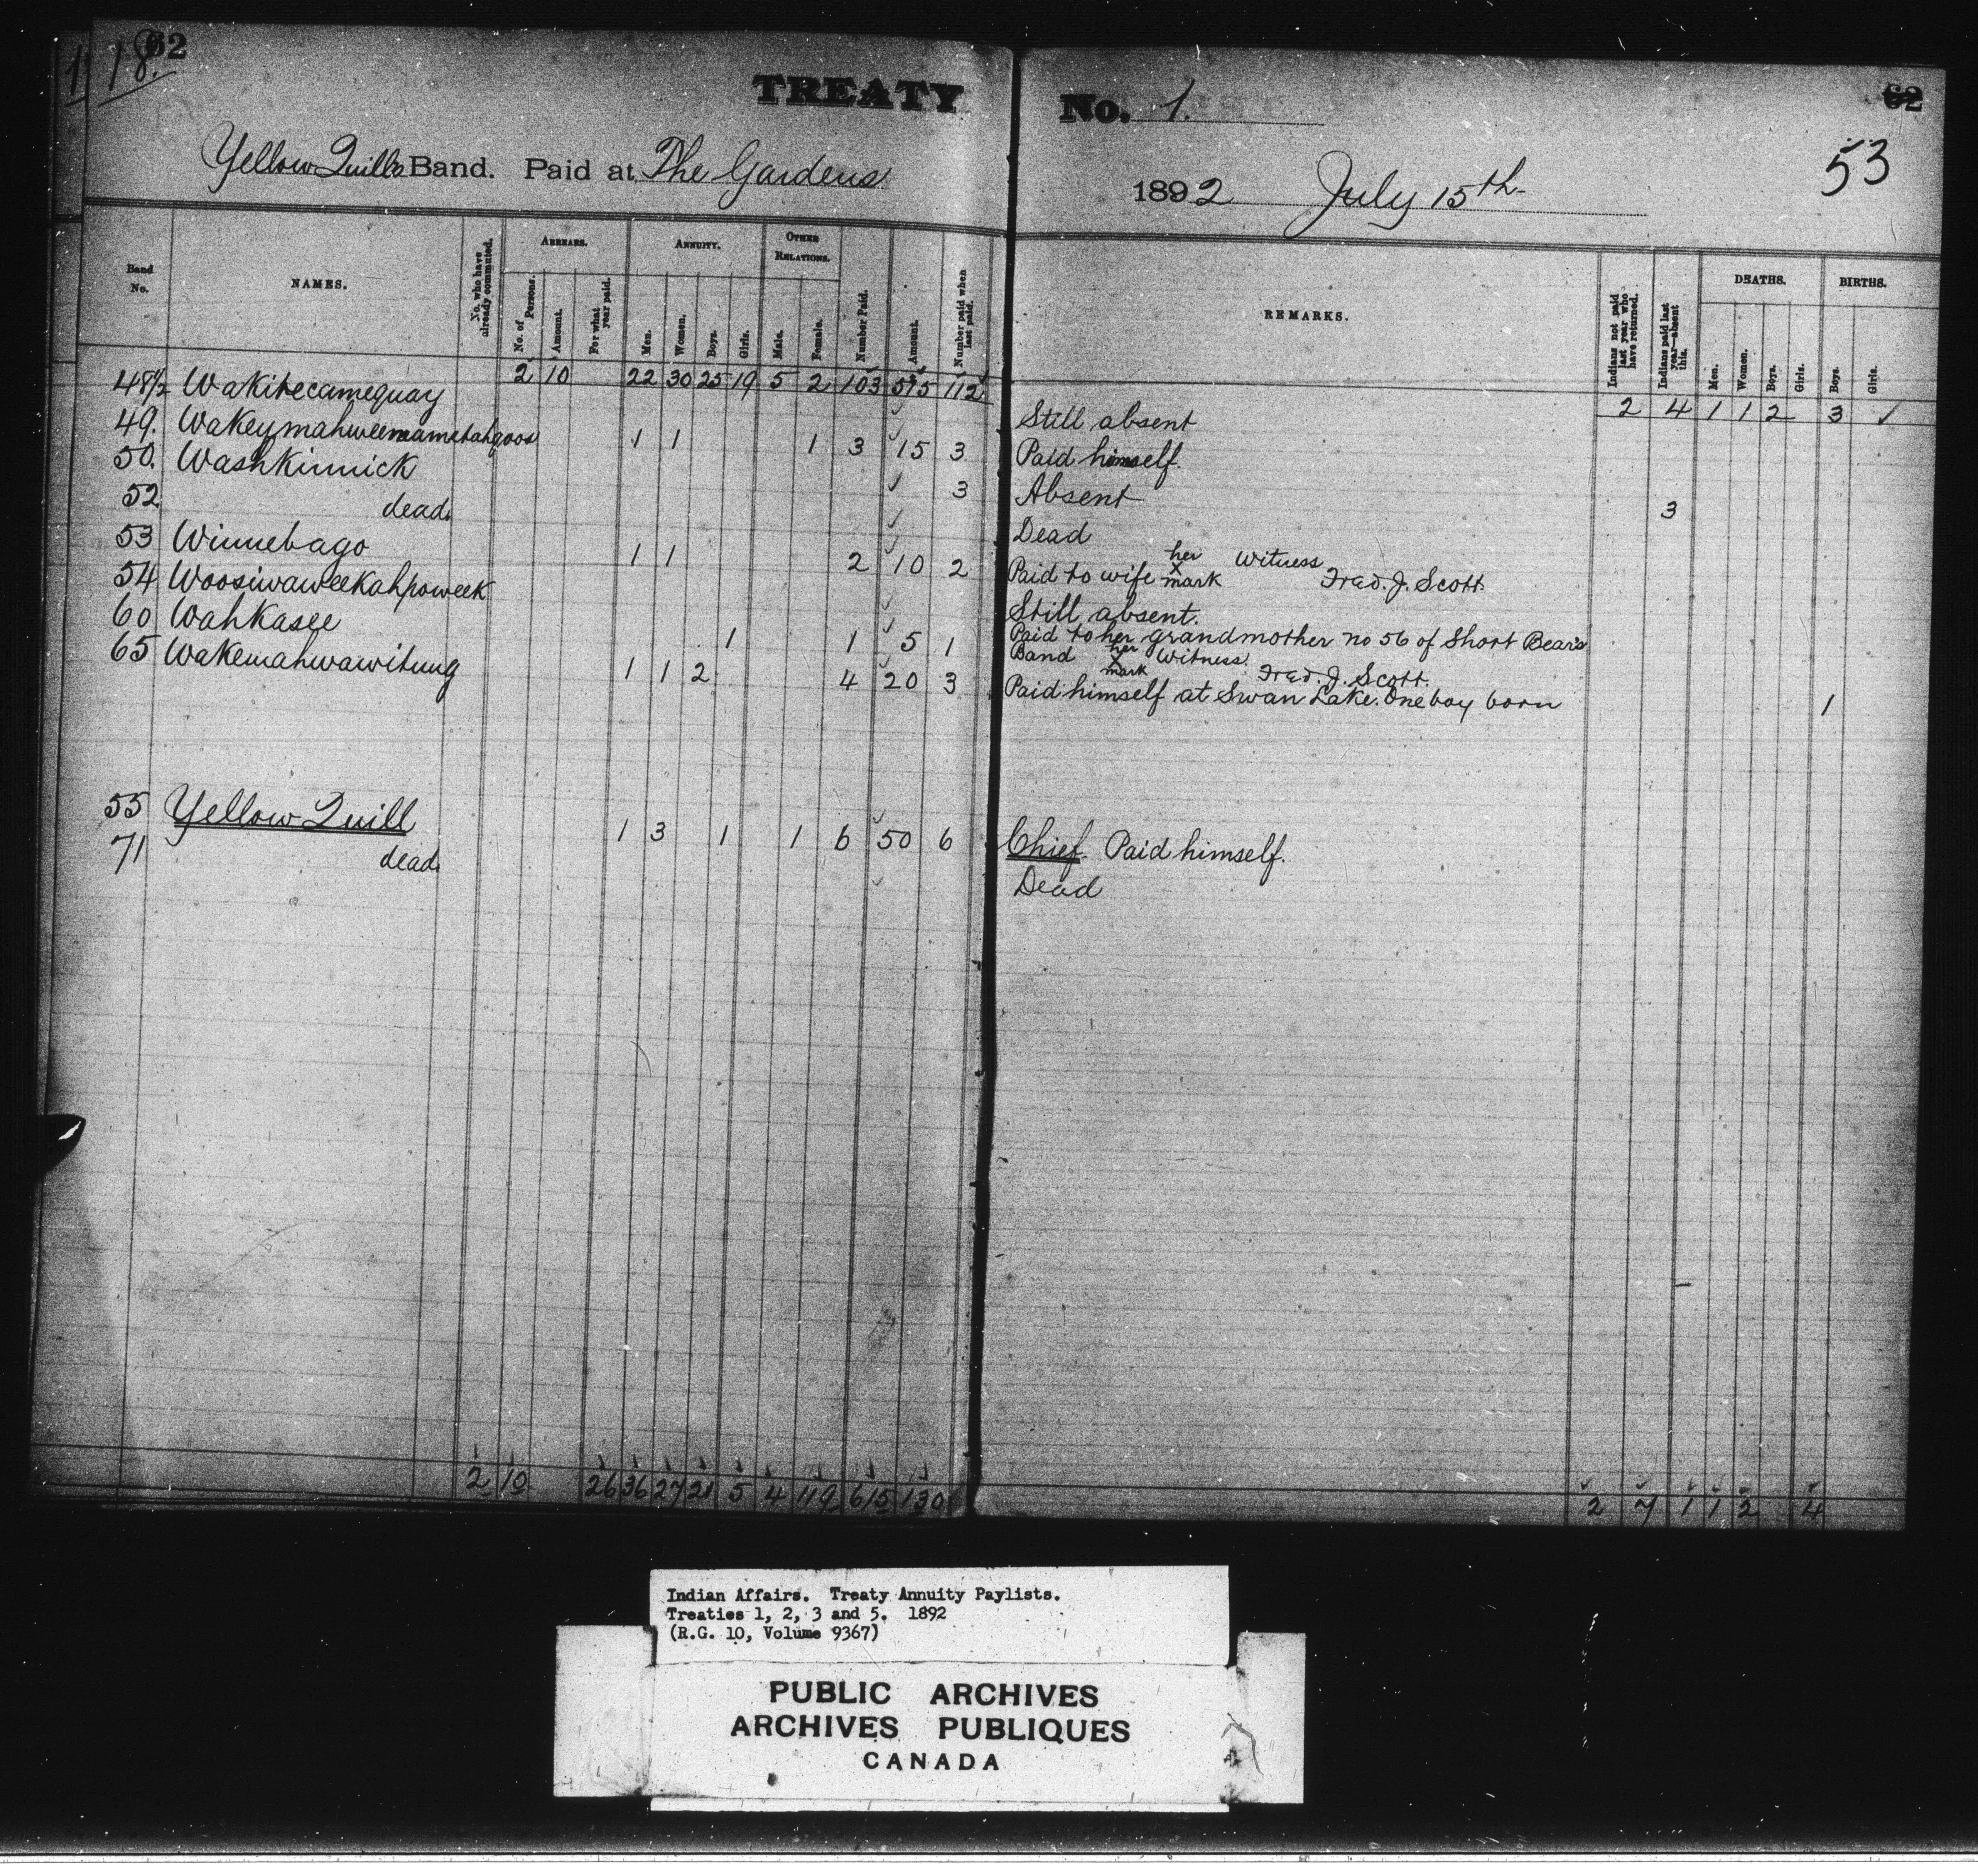 62
18.
TREATY No. 1.
62
53
Yellow Quills Band. Paid at The Gardens
1892 July 15th
Band No.
NAMES.
No. who have already commuted.
ARREARS.
No. of Persons.
Amount.
For what year paid.
ANNUITY.
Men.
Women.
Boys.
Girls.
OTHER RELATIONS.
Male.
Female.
Number Paid.
Amount.
Number paid when last paid.
REMARKS.
Indians not paid last year who have returned.
Indians paid last year—absent this.
DEATHS.
Men.
Women.
Boys.
Girls.
BIRTHS.
Boys.
Girls.
2 10 22 30 25 19 5 2 103 575 112 2 4 1 1 2 3 ✓
48½ Wakitecamequay Still absent
49. Wakeymahweenamebahgoos 1 1 1 3 15 3 Paid himself.
50. Washkinnick 3 Absent 3
52 dead. Dead
53 Winnebago 1 1 2 10 2 Paid to wife her X mark Witness Fred. J. Scott.
54 Woosiwaweekahpoweek Still absent.
60 Wahkasee 1 1 5 1 Paid to her grandmother no 56 of Short Bear's
Band her X mark Witness. Fred. J. Scott.
65 Wakemahwawitung 1 1 2 4 20 3 Paid himself at Swan Lake. One boy born 1
55 Yellow Quill 1 3 1 1 6 50 6 Chief. Paid himself.
71 dead. Dead
2 10 26 36 27 21 5 4 119 615 130 2 7 1 1 2 4
Indian Affairs. Treaty Annuity Paylists.
Treaties 1, 2, 3 and 5. 1892
(R.G. 10, Volume 9367)
PUBLIC ARCHIVES
ARCHIVES PUBLIQUES
CANADA